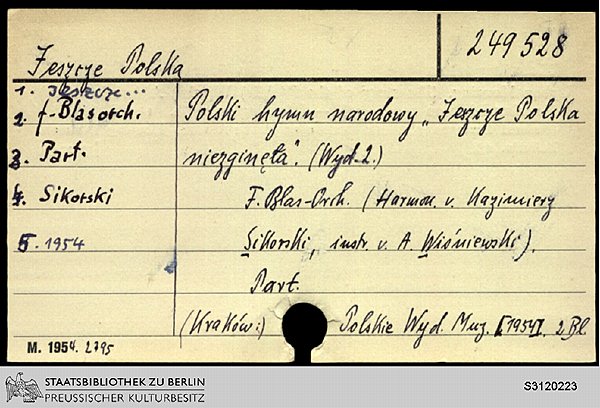 Jeszcze Polska
249 528
1. Jeszcze...
2. f. Blasorch.
3. Part.
4. Sikorski
5. 1954
Polski hymn narodowy „Jeszcze Polska
niezginęła". (Wyd. 2.)
F. Blas-Orch. (Harmon. v. Kazimierz
Sikorski, instr. v. A. Wiśniewski).
Part.
(Kraków:) Polskie Wyd. Muz. [1954]. 2 Bl.
M. 1954. 2795
STAATSBIBLIOTHEK ZU BERLIN
PREUSSISCHER KULTURBESITZ
S3120223